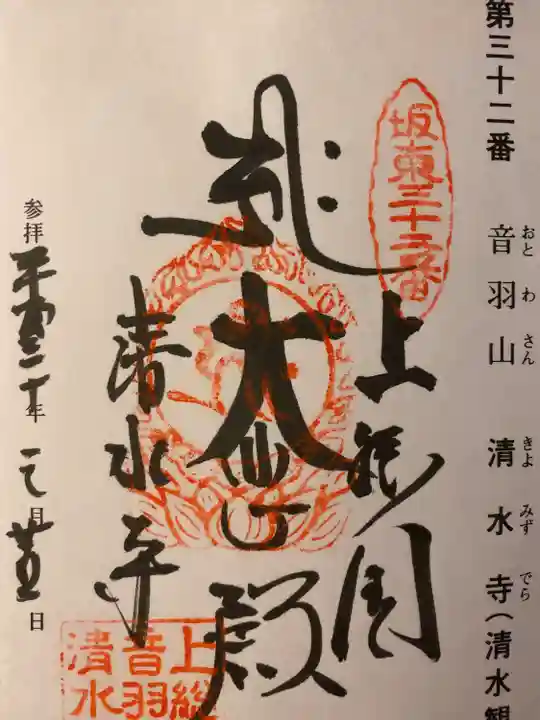 第三十二番 音羽山 清水寺(清水観
おとわさん きよみずでら
坂東三十二番
上総国
大悲殿
清水寺
上総
音羽
清水
参拝 平成三十年 二月 廿五日